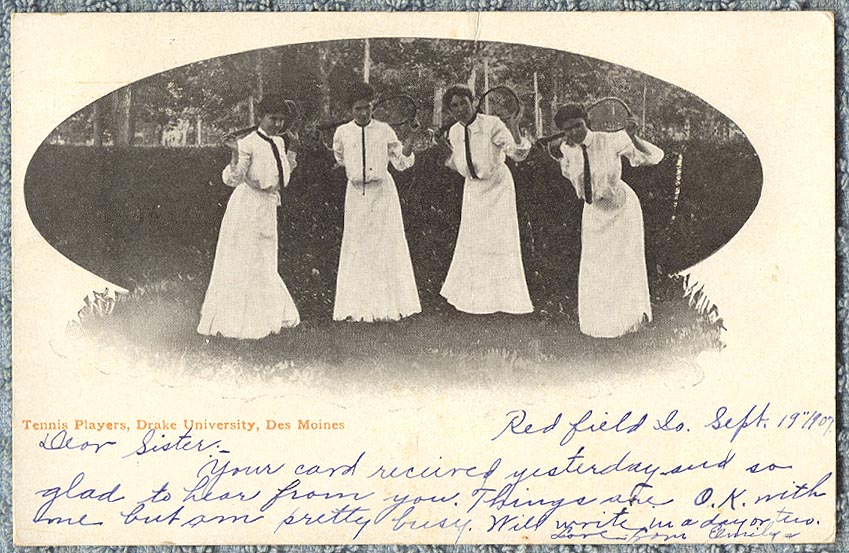 Tennis Players, Drake University, Des Moines
Redfield Io. Sept. 19"/1907
Dear Sister:-
Your card received yesterday and so
glad to hear from you. Things are O.K. with
me but am pretty busy. Will write in a day or two.
Love from Emily